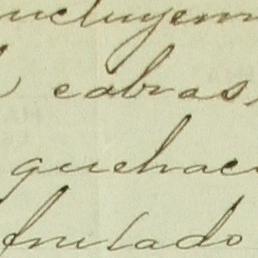 ncluyen
cabras,
quehac
frutado